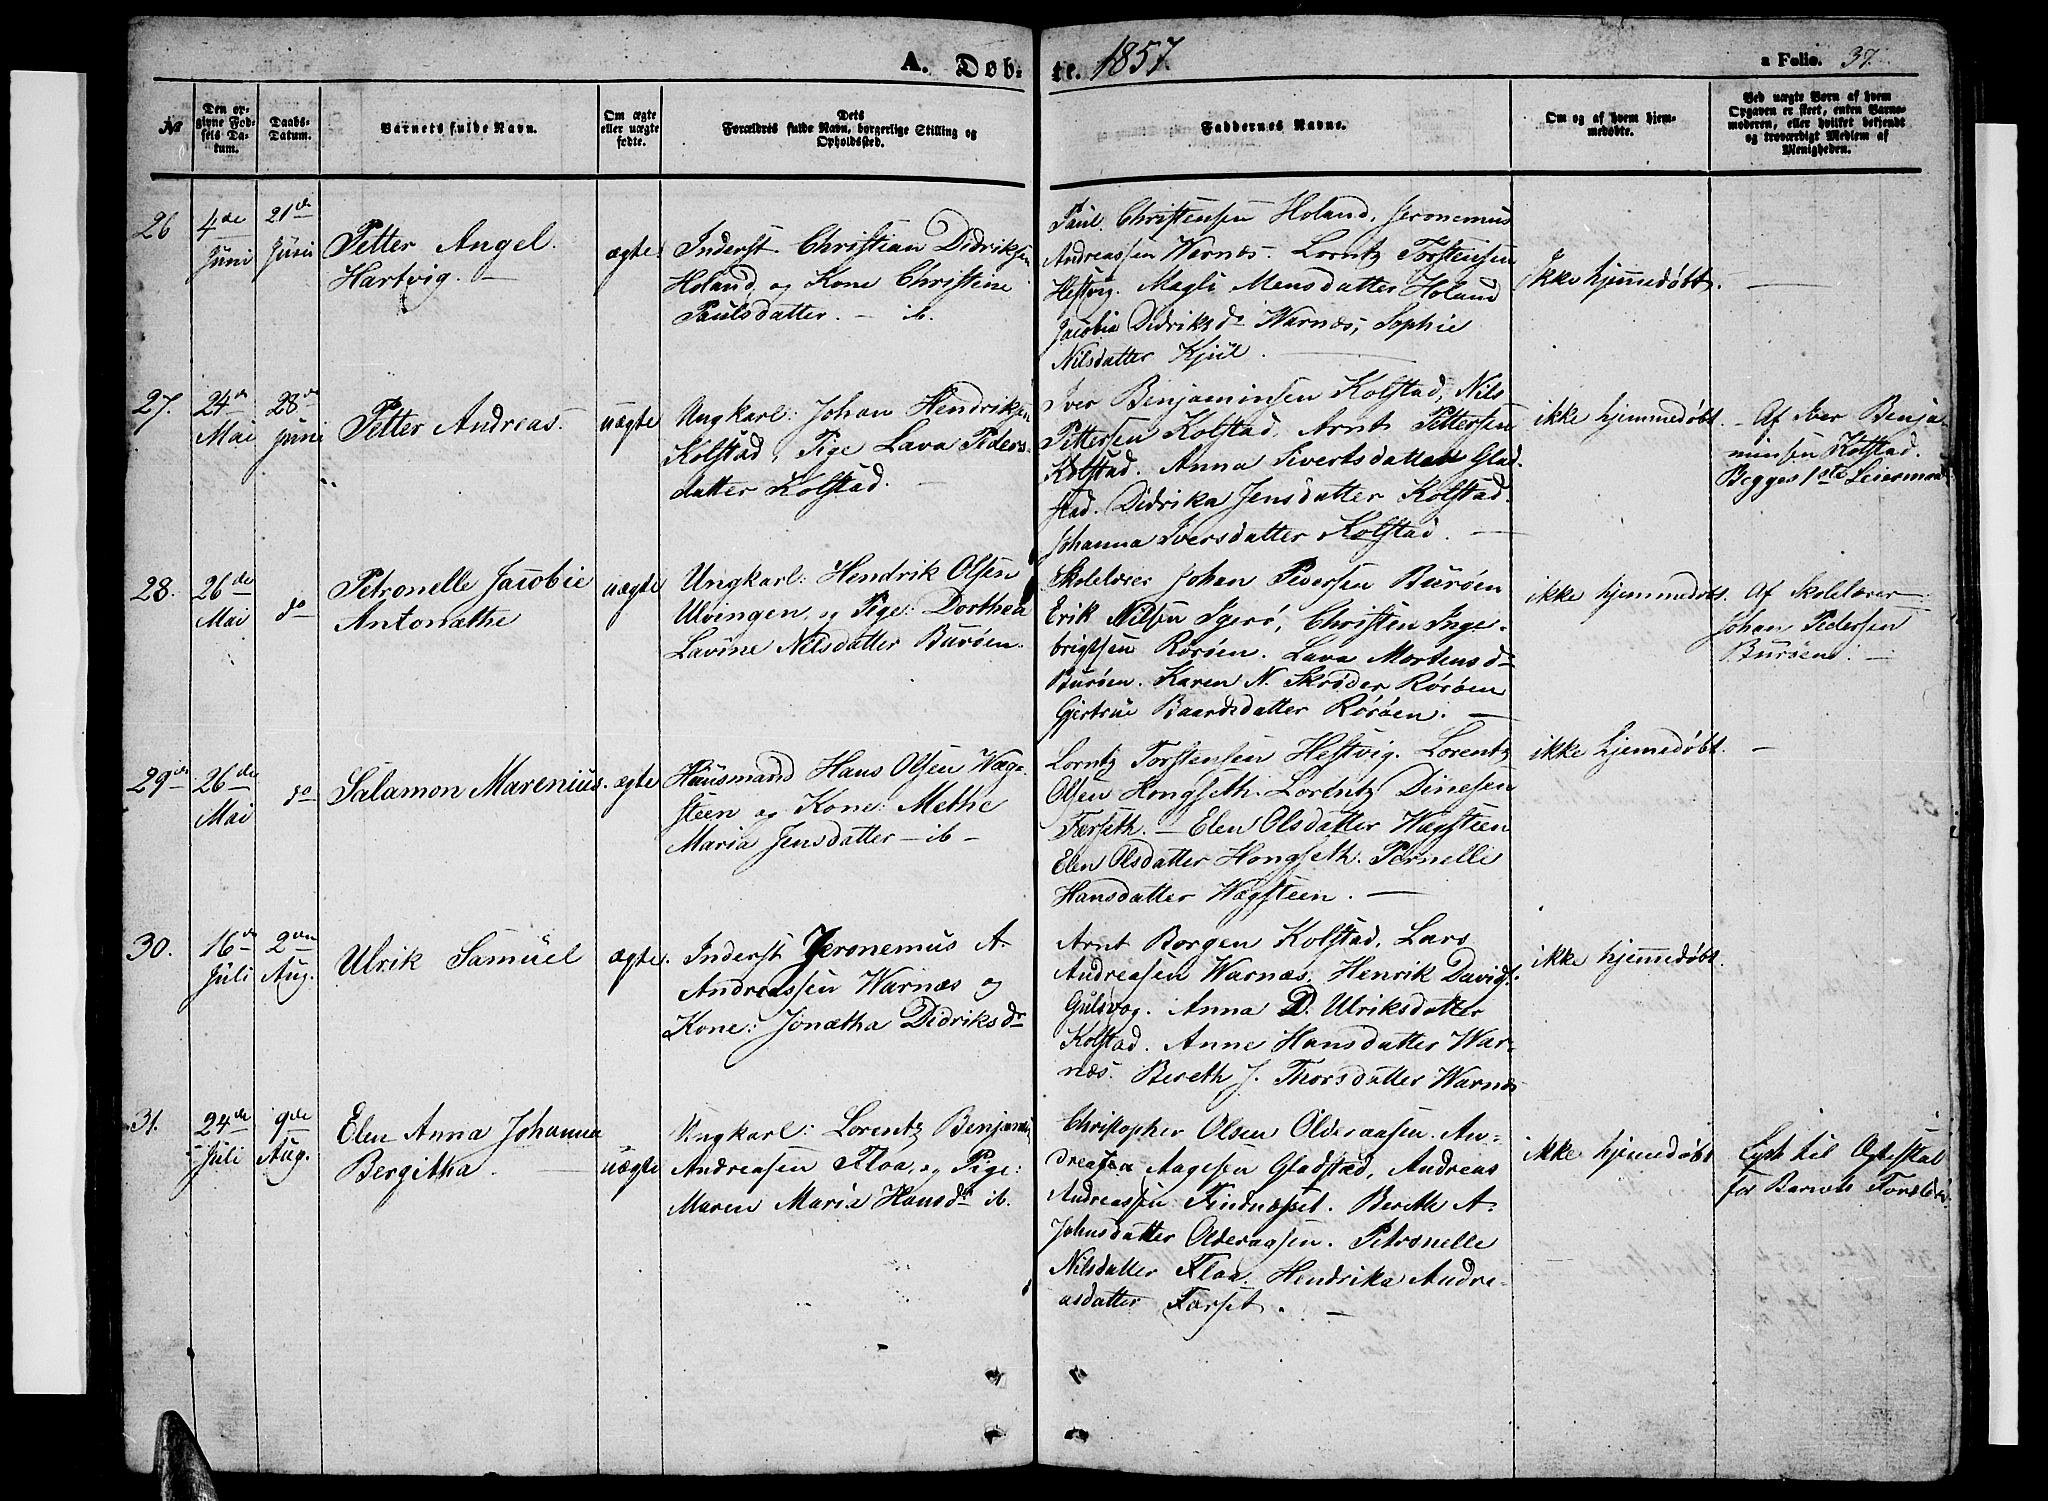 A. Døb-
te. 1857.
a Folio. 37.
№
Den op-
givne Fød-
sels Da-
tum.
Daabs-
Datum.
Barnets fulde Navn.
Om ægte
eller uægte
fødte.
Dets
Forældres fulde Navn, borgerlige Stilling og
Opholdssted.
Faddernes Navne.
Om og af hvem hjem-
medøbte.
Ved uægte Børn af hvem
Opgaven er skeet, enten Barne-
moderen, eller hvilket bekjendt
og troværdigt Medlem af
Menigheden.
26
4de
Juni
21de
Juni
Petter Angel
Hartvig. -
ægte.
Inderst Christian Didriksen
Holand, og Kone Christine
Paulsdatter. - ib.
Paul Christensen Holand, Jeronemus
Andreassen Wernæs. Lorntz Torstensen
Hestvig. Megli Mensdatter Holand
Jacobia Didriksdr Warnæs, Sophie
Nilsdatter Kjul. -
Ikke hjemmedøbt.
-
27.
24de
Mai
28de
Juni
Petter Andreas.
uægte
Ungkarl: Johan Hendriksen
Kolstad, Pige Lava Peders-
datter Kolstad. -
Iver Benjaminsen Kolstad, Nils
Pettersen Kolstad, Arnt Pettersen
Kolstad. Anna Sivertsdatter Glad-
stad. Didrika Jensdatter Kolstad.
Johanna Iversdatter Kolstad. -
ikke hjemmedøbt.
- Af Iver Benja-
minsen Kolstad.
Begges 1ste Leiermaal
28.
26de
Mai
do
Petronelle Jacobie
Antonæthe
uægte
Ungkarl: Hendrik Olsen
Ulvingen, og Pige: Dorthea
Lavine Nilsdatter Burøen.
Skolelærer Johan Pedersen Burøen
Erik Nilsen Igerø, Christen Inge-
brigtsen Rørøen. Lava Mortensdr
Burøen. Karen N. Skrøder Rørøen
Gjertrue Baardsdatter Rørøen. -
ikke hjemmedøbt.
Af Skolelærer
Johan Pedersen
Burøen. -
29de
26de
Mai
do
Salamon Marenius.
ægte
Huusmand Hans Olsen Wæg-
steen og Kone: Methe
Maria Jensdatter - ib -
Lorntz Torstensen Hestvig. Lorentz
Olsen Hongseth. Lorentz Dinesen
Færseth. - Elen Olsdatter Wægsteen
Elen Olsdatter Hongseth. Pernelle
Hansdatter Wægsteen. -
ikke hjemedøbt.
-
30.
16de
Juli
2den
Aug.
Ulrik Samuel
ægte.
Inderst Jeronemus A.
Andreassen Warnæs og
Kone: Jonætha Didriksdr
Arnt Borgen Kolstad, Lars
Andreasen Warnæs, Henrik Davids.
Gulsvog. Anna D. Ulriksdatter
Kolstad. Anne Hansdatter War-
næs. Bereth J. Thorsdatter Warnæs
ikke hjemmedøbt.
31.
24de
Juli
9de
Aug.
Elen Anna Johanna
Bergitha.
uægte
Ungkarl: Lorentz Benjamin
Andreasen Floa, og Pige:
Maren Maria Hansdr ib.
Christopher Olsen Olderaasen. An-
dreas Aagesen Gladstad, Andreas
Andreassen Findnæsset. Bereth A.
Johnsdatter Olderaasen. Petronelle
Nilsdatter Floa. Hendrika Andre-
asdatter Færset. -
ikke hjemmedøbt
Lyst til Ægteskab
for Barnets Forældre.